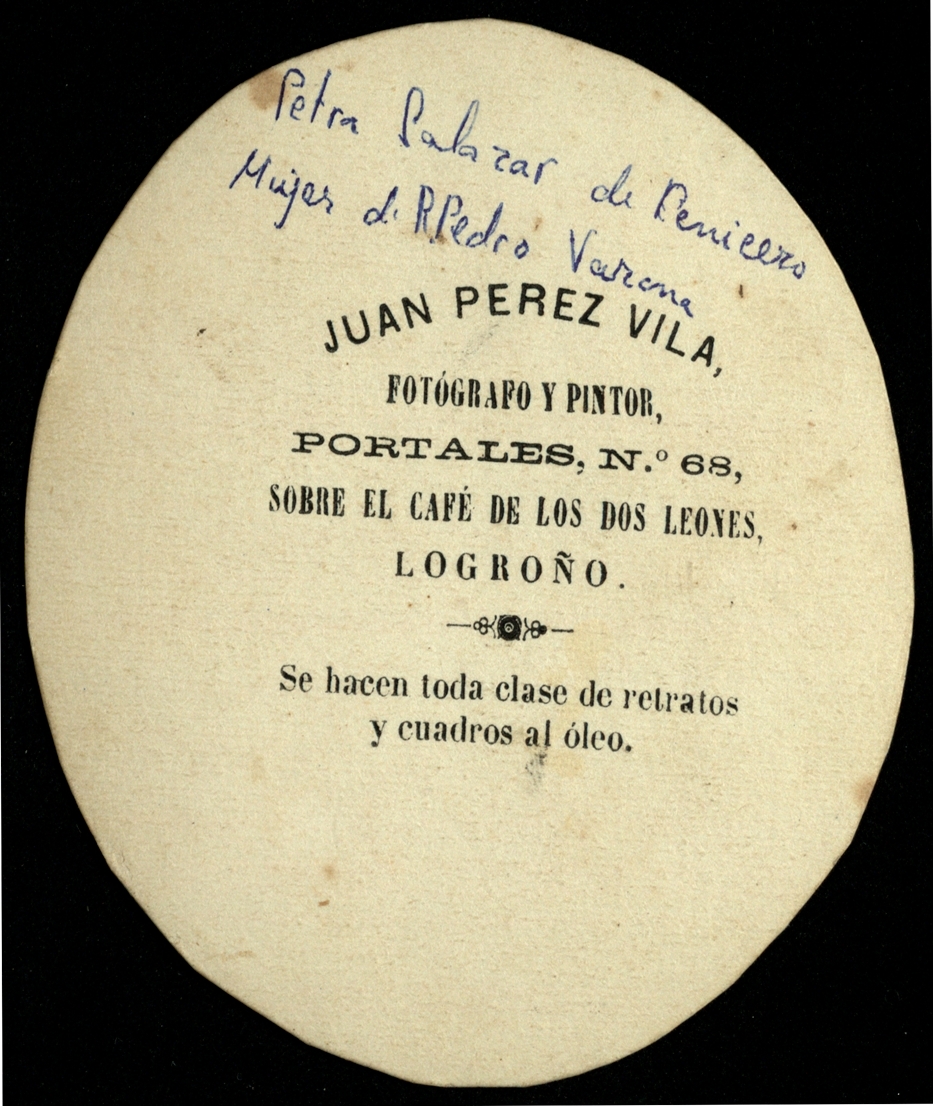 Petra Salazar de Cenicero
Mujer de P. Pedro Varona
JUAN PEREZ VILA,
FOTÓGRAFO Y PINTOR,
PORTALES, N.º 68,
SOBRE EL CAFÉ DE LOS DOS LEONES,
LOGROÑO.
Se hacen toda clase de retratos
y cuadros al óleo.